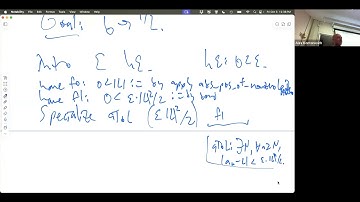 Goal: bₙ → 1/L.
Intro ε hε.
hε: 0<ε.
have f0: 0<|L| := by apply abs_pos_of_nonzero
have f1: 0 < ε·|L|²/2 := by bound
Specialize aToL (ε|L|²/2) f1
aToL: ∃N, ∀n≥N,
|aₙ-L| < ε·|L|²/2.